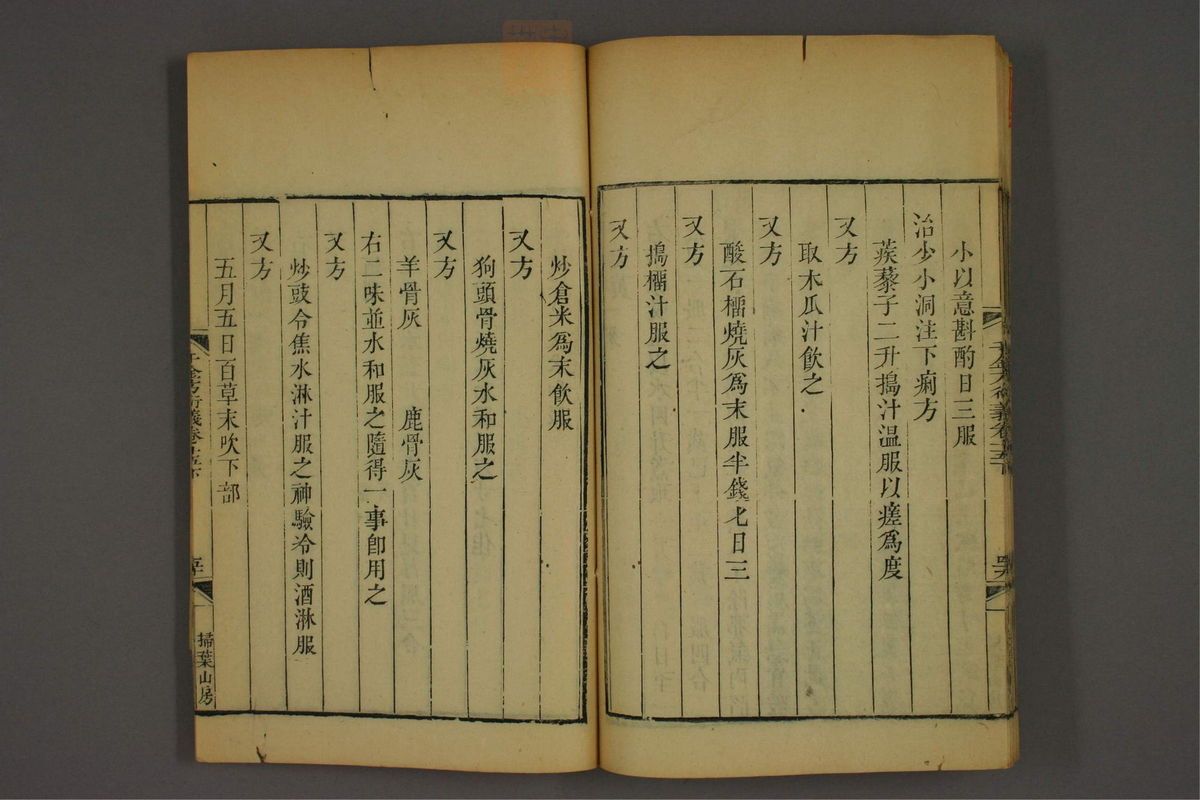 小以意斟酌日三服
治少小洞注下痢方
蒺藜子二升搗汁溫服以瘥爲度
又方
取木瓜汁飲之
又方
酸石榴燒灰爲末服半錢匕日三
又方
搗榴汁服之
又方
炒倉米爲末飲服
又方
狗頭骨燒灰水和服之
又方
羊骨灰　鹿骨灰
右二味並水和服之隨得一事卽用之
又方
炒豉令焦水淋汁服之神驗冷則酒淋服
又方
五月五日百草末吹下部
千金方衍義卷十五下
掃葉山房